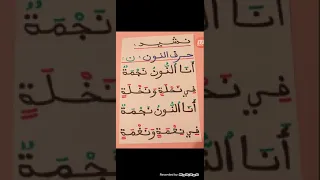 نشيد:
حرف النون "ن"
أَنَا النُّونُ نَجْمَةٌ
فِي نَحْلَةٍ وَنَخْلَةٍ
أَنَا النُّونُ نَجْمَةٌ
فِي نِعْمَةٍ وَنَغْمَةٍ